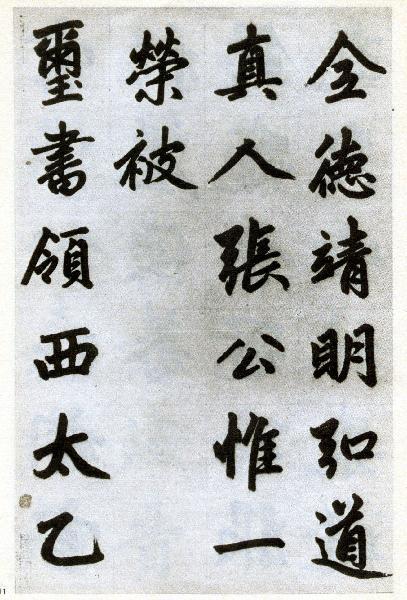 全德靖明弘道
真人張公惟一
榮被
璽書領西太乙